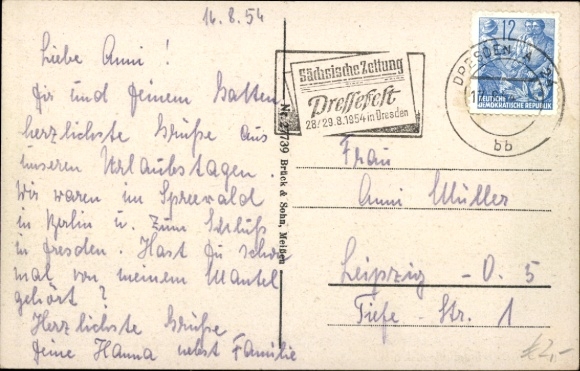 16.8.54
Liebe Anni!
Dir und Deinem Gatten
herzlichste Grüße aus
unseren Urlaubstagen.
Wir waren im Spreewald
in Berlin u. zum Schluß
in Dresden. Hast Du schon
mal von meinem Mantel
gehört?
Herzlichste Grüße
Deine Hanna nebst Familie
Nr. 27739 Brück & Sohn, Meißen
Sächsische Zeitung
Pressefest
28/29.8.1954 in Dresden
12
DEUTSCHE
DEMOKRATISCHE REPUBLIK
DRESDEN A
bb
Frau
Anni Müller
Leipzig - O. 5
Tiefe - Str. 1
€2,-